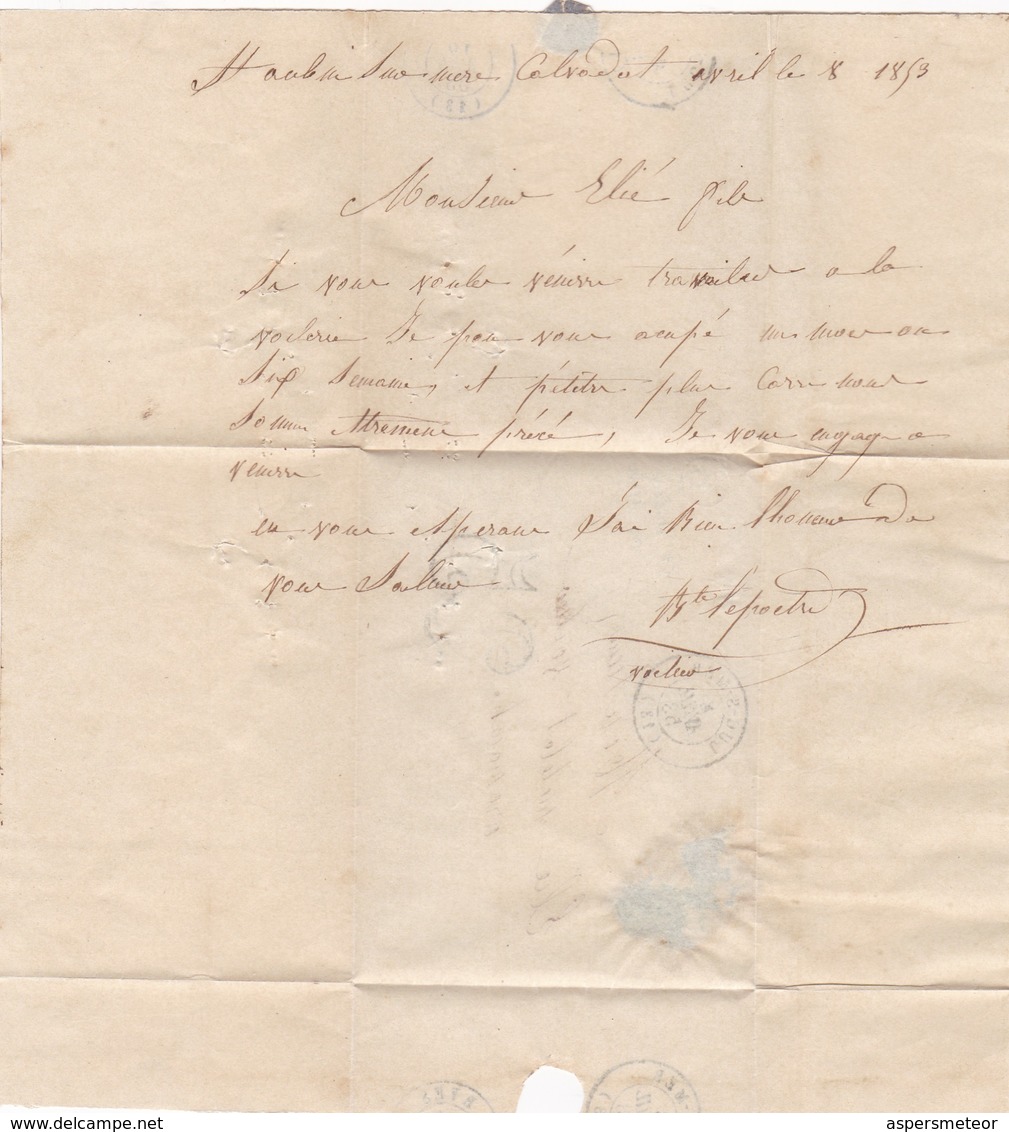 St aubin Sur mere Calvadost avril le 8 1853
Monsieur Elié fils
Si vous voulez vénirre travailler a la
voilerie Je peu vous ocupé un mois ou
Six Semaine, et pétètre plus Carre nous
Somme trement précé, Je vous engage a
venirre
en vous Esperant J'ai bien lhonneur de
vous Saluer
Lepoetre
voilier
(13)
aspersmeteor